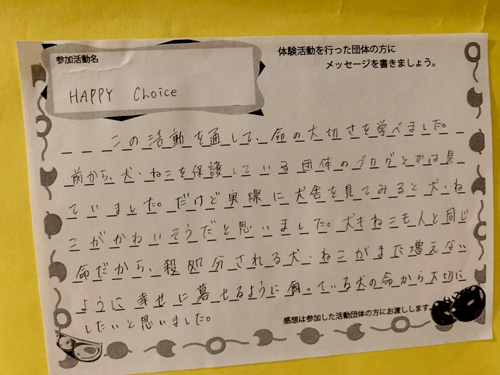 参加活動名
HAPPY Choice
体験活動を行った団体の方に
メッセージを書きましょう。
この活動を通して、命の大切さを学べました。
前から、犬、ねこを保護している団体のブログとかは見
ていました。だけど実際に犬舎を見てみると犬、ね
こがかわいそうだと思いました。犬もねこも人と同じ
命だから、殺処分される犬、ねこがまだ増えない
ように幸せに暮せるように飼っている犬の命から大切に
したいと思いました。
感想は参加した活動団体の方にお渡しします。